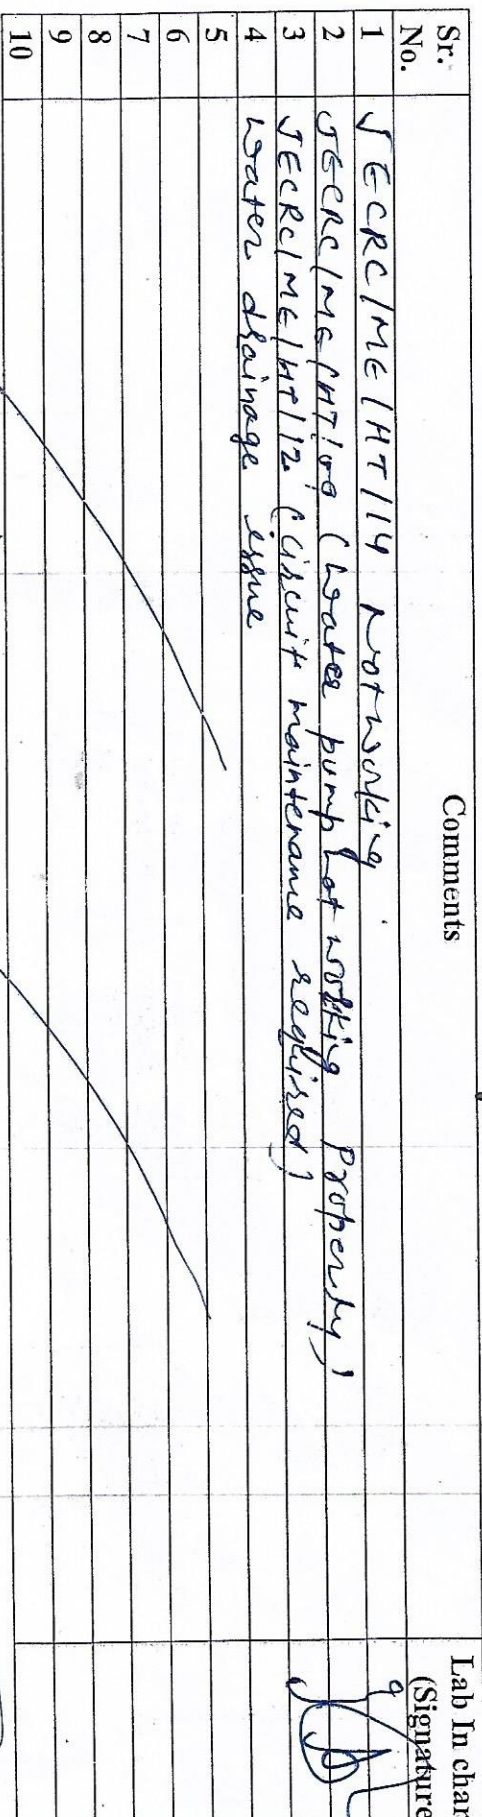 Sr. No. Comments Lab In char
(Signature
1 JECRC/ME/HT/14 Not working
2 JECRC/ME/HT/ (Water pump not working Properly)
3 JECRC/ME/HT/12 (Circuit maintenance required)
4 Water drainage issue
5
6
7
8
9
10